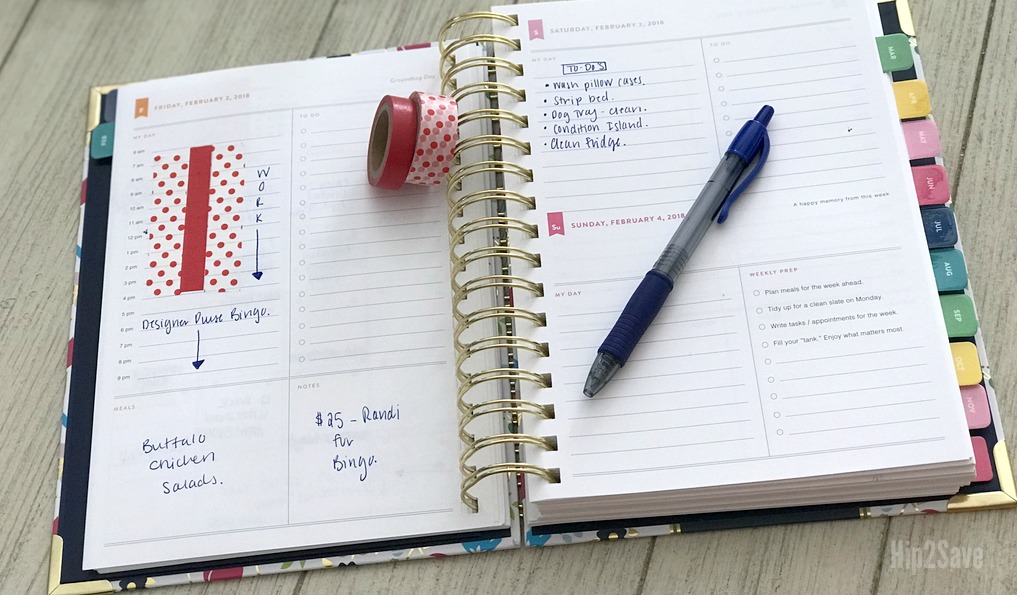 F
FRIDAY, FEBRUARY 2, 2018
Groundhog Day
MY DAY
TO DO
6 am
7 am
8 am
9 am
10 am
11 am
12 pm
1 pm
2 pm
3 pm
4 pm
5 pm
6 pm
7 pm
8 pm
9 pm
W
O
R
K
Designer Purse Bingo.
MEALS
Buffalo
chicken
Salads.
NOTES
$25 - Randi
for
Bingo.
FEB
S
SATURDAY, FEBRUARY 3, 2018
MY DAY
TO DO
TO-DO'S
• Wash pillow cases.
• Strip bed.
• Dog Tray - clean.
• Condition Island.
• Clean Fridge.
A happy memory from this week
Su
SUNDAY, FEBRUARY 4, 2018
MY DAY
WEEKLY PREP
Plan meals for the week ahead.
Tidy up for a clean slate on Monday.
Write tasks / appointments for the week.
Fill your "tank." Enjoy what matters most.
MAR
APR
MAY
JUN
JUL
AUG
SEP
OCT
NOV
Hip2Save